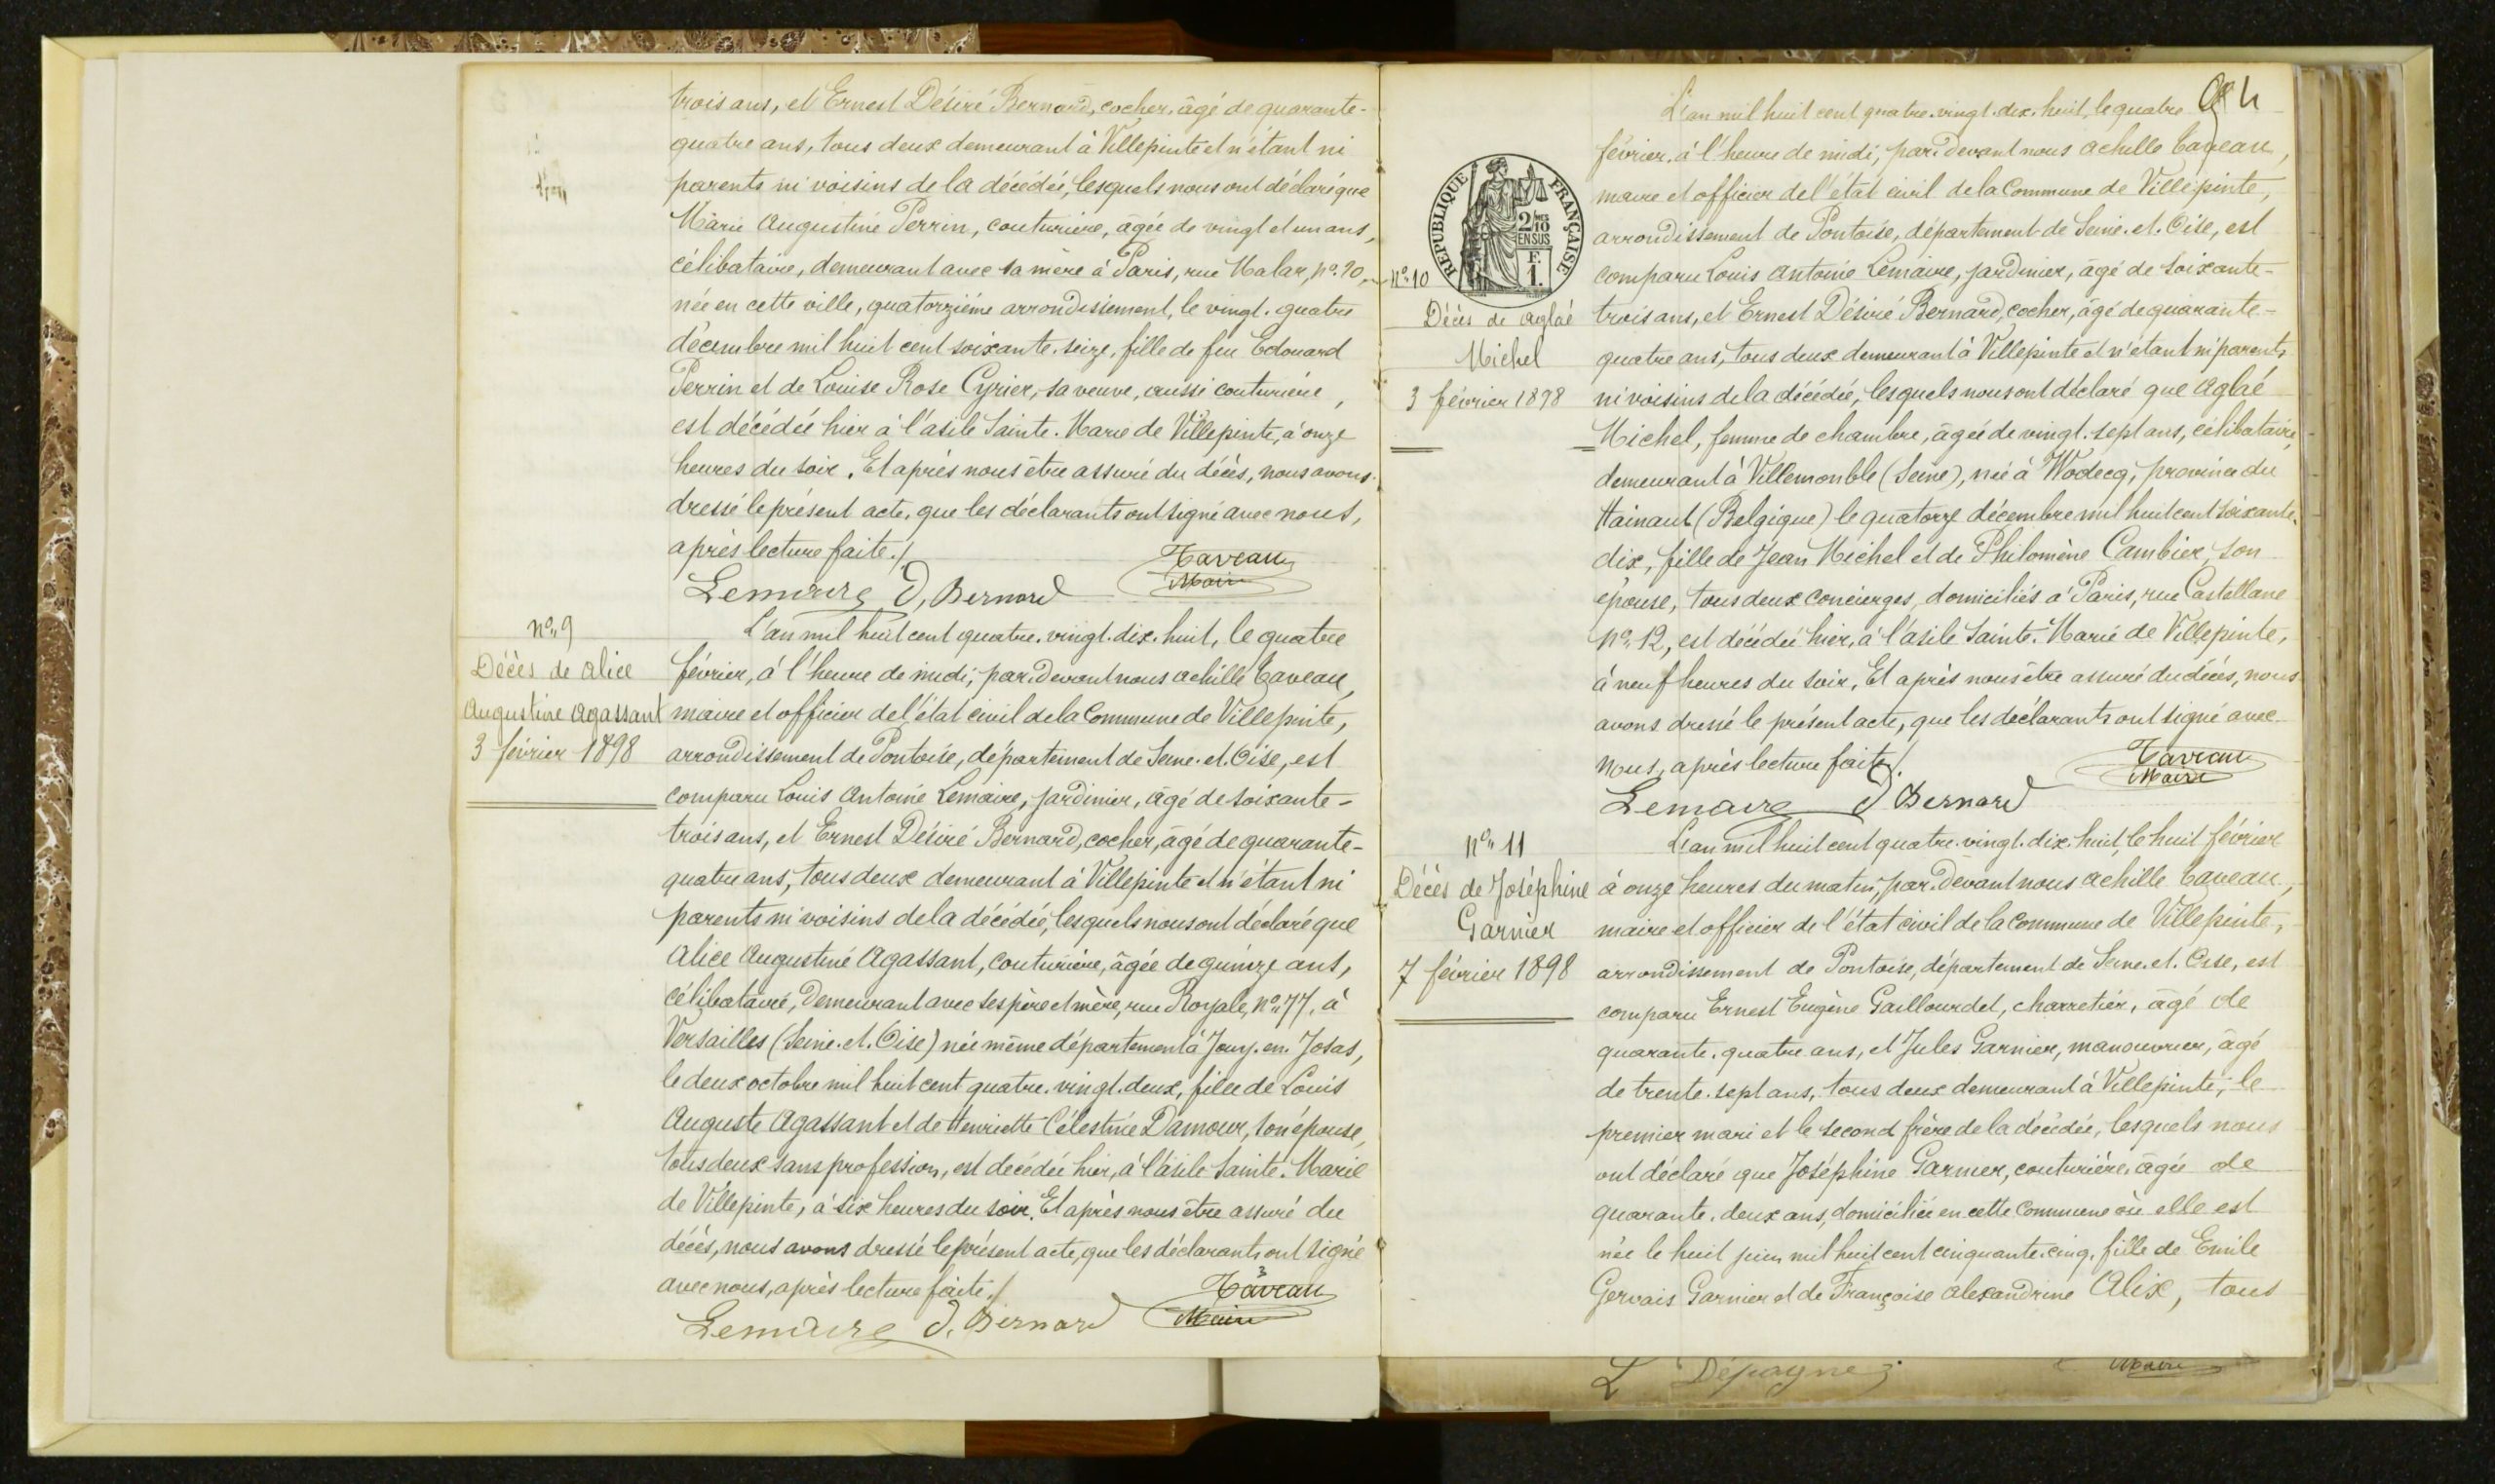 trois ans, et Ernest Désiré Bernard, cocher, âgé de quarante-
quatre ans, tous deux demeurant à Villepinte et n'étant ni
parents ni voisins de la décédée, lesquels nous ont déclaré que
Marie Augustine Perrin, couturière, âgée de vingt et un ans,
célibataire, demeurant avec sa mère à Paris, rue Malar, no. 20,
née en cette ville, quatorzième arrondissement, le vingt-quatre
décembre mil huit cent soixante-seize, fille de feu Edouard
Perrin et de Louise Rose Cyrier, sa veuve, aussi couturière,
est décédée hier à l'asile Sainte-Marie de Villepinte, à onze
heures du soir. Et après nous être assuré du décès, nous avons
dressé le présent acte, que les déclarants ont signé avec nous,
après lecture faite./.
Lemaire D, Bernard Taveau
Maire
no. 9
Décès de Alice
Augustine Agassant
3 février 1898
L'an mil huit cent quatre-vingt-dix-huit, le quatre
février, à l'heure de midi, par-devant nous Achille Taveau,
maire et officier de l'état civil de la Commune de Villepinte,
arrondissement de Pontoise, département de Seine-et-Oise, est
comparu Louis Antoine Lemaire, jardinier, âgé de soixante-
trois ans, et Ernest Désiré Bernard, cocher, âgé de quarante-
quatre ans, tous deux demeurant à Villepinte et n'étant ni
parents ni voisins de la décédée, lesquels nous ont déclaré que
Alice Augustine Agassant, couturière, âgée de quinze ans,
célibataire, demeurant avec ses père et mère, rue Royale, no. 77, à
Versailles (Seine-et-Oise) née même département à Jouy-en-Josas,
le deux octobre mil huit cent quatre-vingt-deux, fille de Louis
Auguste Agassant et de Henriette Célestine Damour, son épouse,
tous deux sans profession, est décédée hier, à l'asile Sainte-Marie
de Villepinte, à six heures du soir. Et après nous être assuré du
décès, nous avons dressé le présent acte, que les déclarants ont signé
avec nous, après lecture faite./.
Lemaire D. Bernard Taveau
Maire
4
RÉPUBLIQUE FRANÇAISE
2/10
EN SUS
F.
1.
No. 10
Décès de Aglaé
Michel
3 février 1898
L'an mil huit cent quatre-vingt-dix-huit, le quatre
février, à l'heure de midi, par-devant nous Achille Taveau,
maire et officier de l'état civil de la Commune de Villepinte,
arrondissement de Pontoise, département de Seine-et-Oise, est
comparu Louis Antoine Lemaire, jardinier, âgé de soixante-
trois ans, et Ernest Désiré Bernard, cocher, âgé de quarante-
quatre ans, tous deux demeurant à Villepinte et n'étant ni parents
ni voisins de la décédée, lesquels nous ont déclaré que Aglaé
Michel, femme de chambre, âgée de vingt-sept ans, célibataire,
demeurant à Villemomble (Seine), née à Wodecq, province du
Hainaut (Belgique) le quatorze décembre mil huit cent soixante-
dix, fille de Jean Michel et de Philomène Cambier, son
épouse, tous deux concierges, domiciliés à Paris, rue Castellane
no. 12, est décédée hier, à l'asile Sainte-Marie de Villepinte,
à neuf heures du soir. Et après nous être assuré du décès, nous
avons dressé le présent acte, que les déclarants ont signé avec
nous, après lecture faite./.
Lemaire D Bernard Taveau
Maire
no. 11
Décès de Joséphine
Garnier
7 février 1898
L'an mil huit cent quatre-vingt-dix-huit, le huit février
à onze heures du matin, par-devant nous Achille Taveau,
maire et officier de l'état civil de la commune de Villepinte,
arrondissement de Pontoise, département de Seine-et-Oise, est
comparu Ernest Eugène Gaillourdet, charretier, âgé de
quarante-quatre ans, et Jules Garnier, manouvrier, âgé
de trente-sept ans, tous deux demeurant à Villepinte; le
premier mari et le second frère de la décédée, lesquels nous
ont déclaré que Joséphine Garnier, couturière, âgée de
quarante-deux ans, domiciliée en cette Commune où elle est
née le huit juin mil huit cent cinquante-cinq, fille de Emile
Gervais Garnier et de Françoise Alexandrine Alix, tous
L Dépagne
Maire